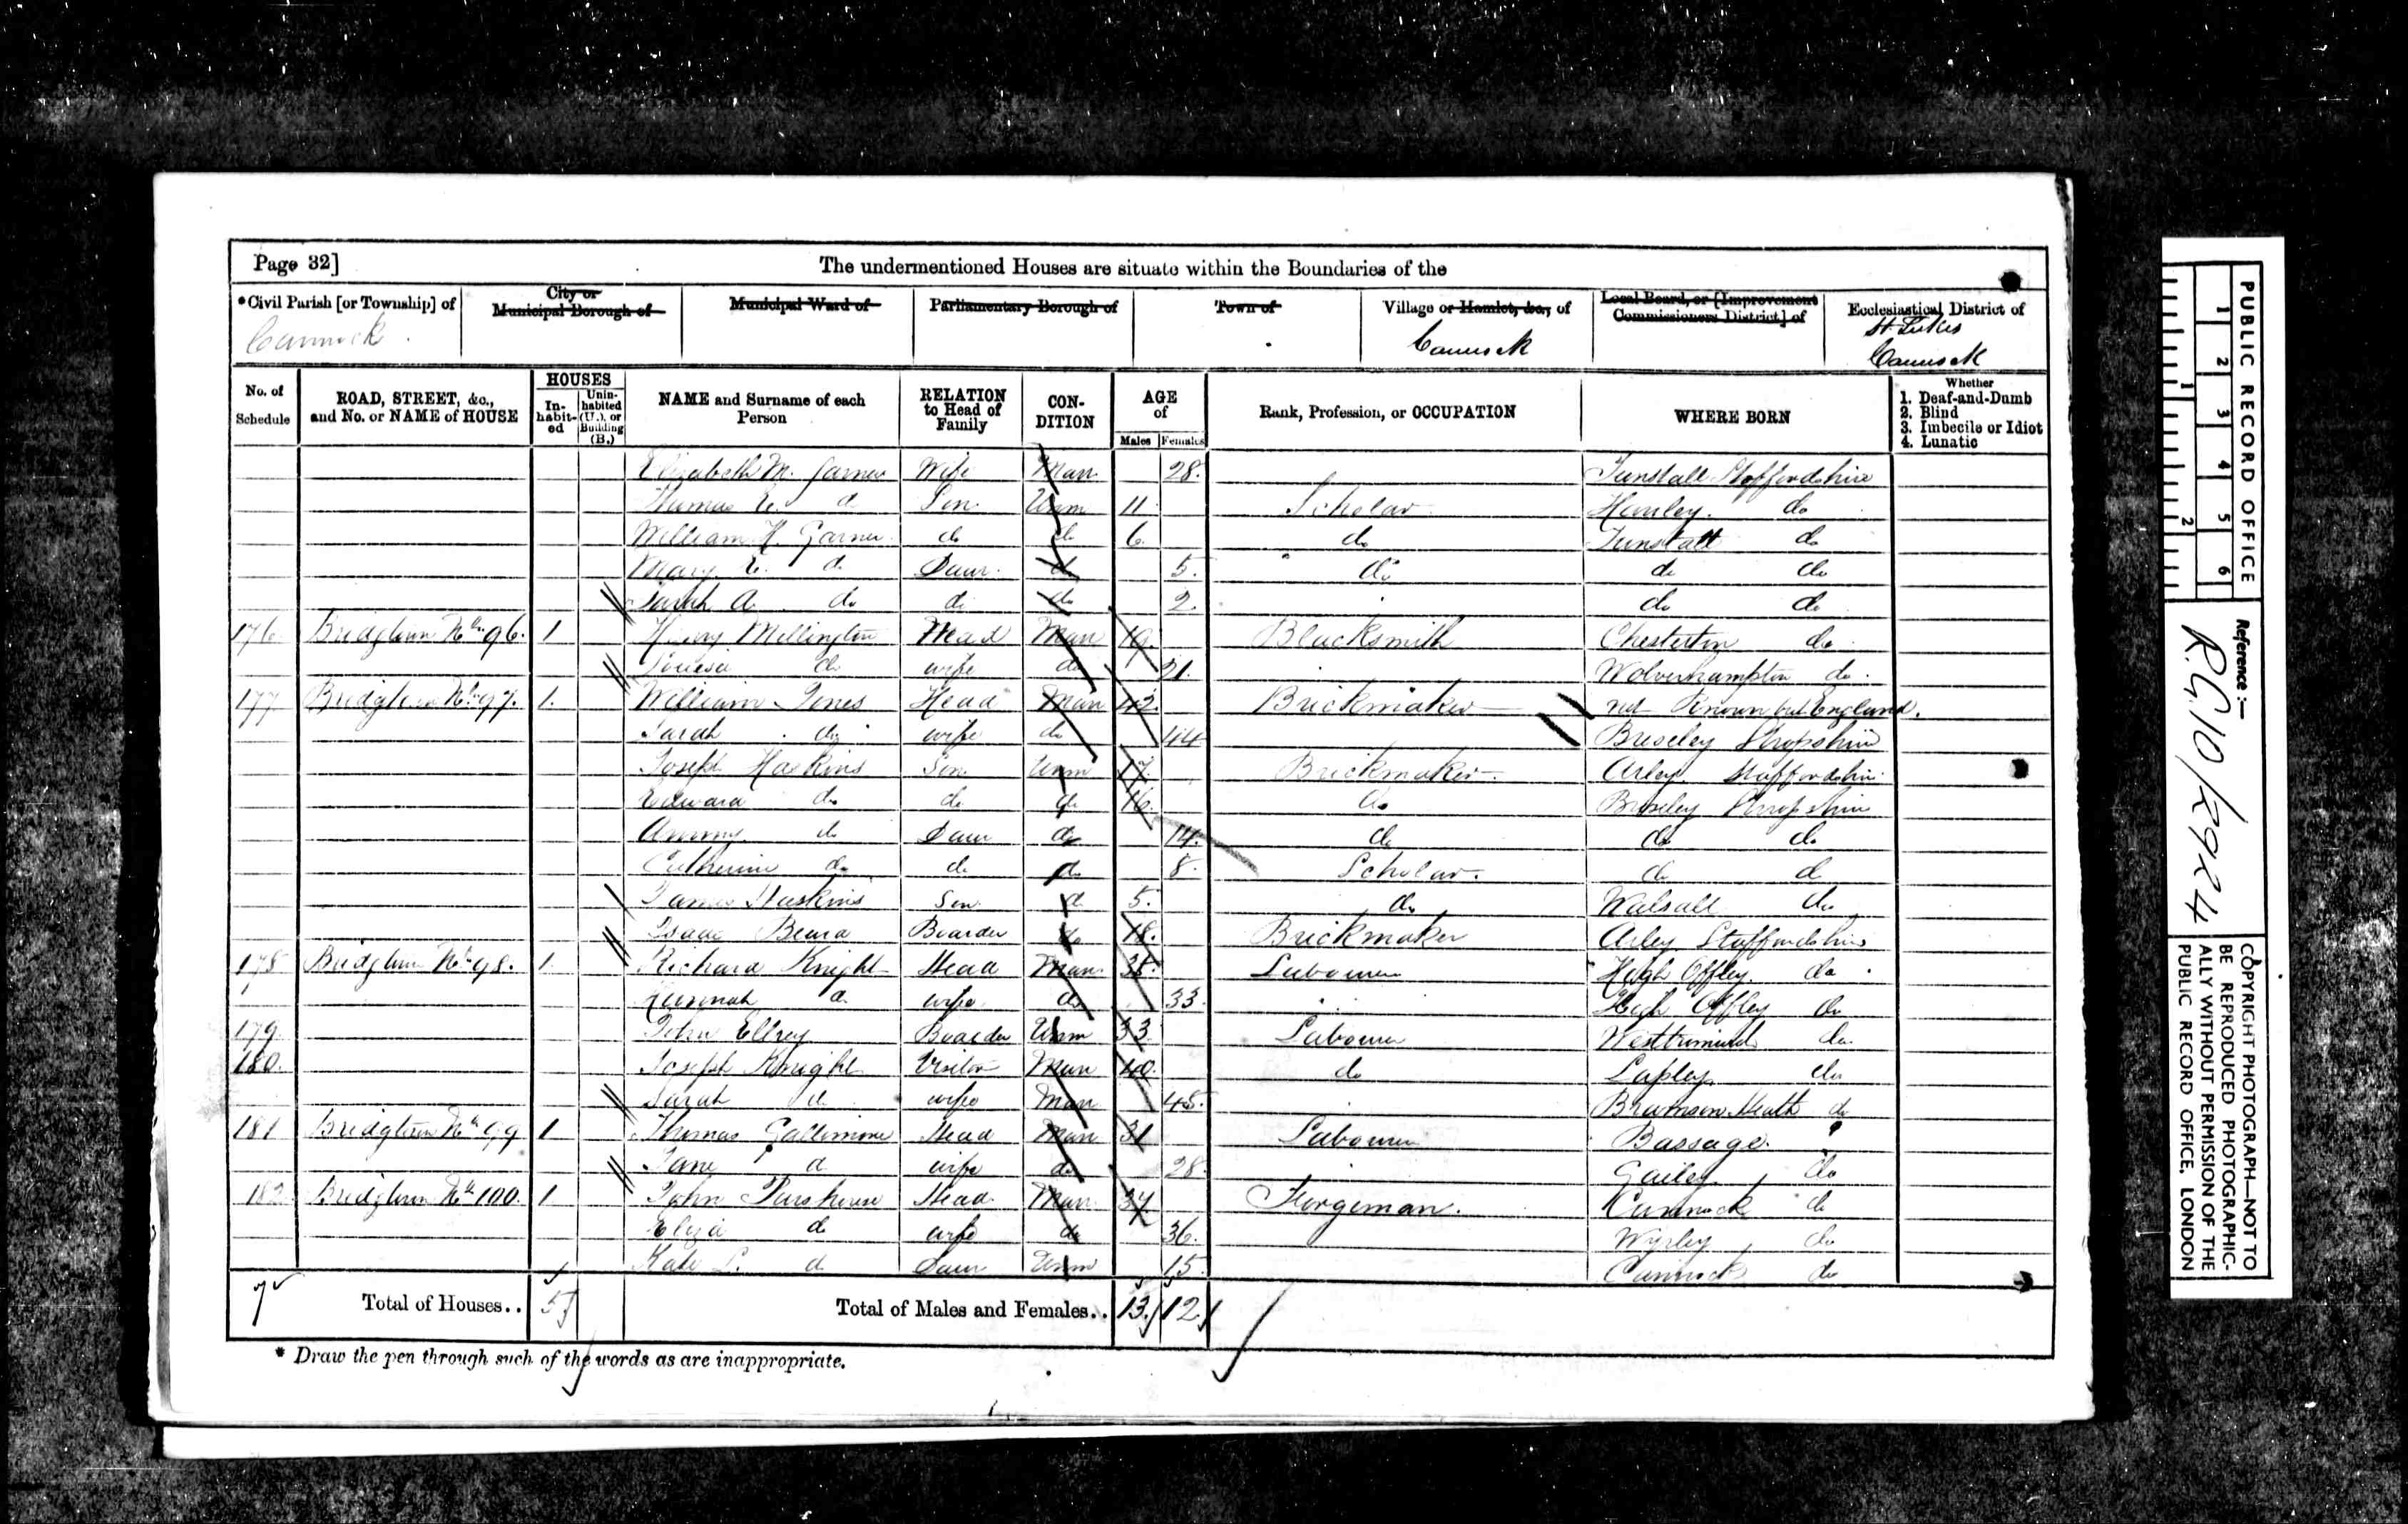 Page 32]
The undermentioned Houses are situate within the Boundaries of the
*Civil Parish [or Township] of
City or Municipal Borough of
Municipal Ward of
Parliamentary Borough of
Town of
Village or Hamlet, &c., of
Local Board, or [Improvement Commissioners District] of
Ecclesiastical District of
Cannock
Cannock
St Lukes Cannock
No. of Schedule
ROAD, STREET, &c., and No. or NAME of HOUSE
HOUSES
Inhabited
Uninhabited (U.), or Building (B.)
NAME and Surname of each Person
RELATION to Head of Family
CONDITION
AGE of
Males Females
Rank, Profession, or OCCUPATION
WHERE BORN
Whether
1. Deaf-and-Dumb
2. Blind
3. Imbecile or Idiot
4. Lunatic
Elizabeth M. Garner Wife Marr 28. Tunstall Staffordshire
Thomas E. d Son Unm 11 Scholar Hanley do
William H. Garner do do 6 do Tunstall do
Mary E. d Daur. d 5. do do do
Sarah A do d do 2. do do
176 Bridgtown No. 96. 1 Henry Millington Head Marr 19. Blacksmith Chesterton do
Louisa do wife do 21. Wolverhampton do
177 Bridgtown No. 97. 1. William Jones Head Marr 43. Brickmaker not Known but England.
Sarah do wife do 44 Broseley Shropshire
Joseph Haskins Son Unm 17. Brickmaker Arley Staffordshire
Edward do do d 16. do Broseley Shropshire
do Daur do 14. do do do
Catherine do do do 8. Scholar. do d
James Haskins Son d 5. do Walsall do
Isaac Boarder do 18. Brickmaker Arley Staffordshire
178 Bridgtown No. 98. 1. Richard Knight Head Marr Labourer High Offley. do
Hannah d wife do 33. High Offley do
179 John Boarder Unm 33 Labourer do
180. Joseph Knight Visitor Marr 40 do Lapley do
Sarah d wife Marr 45. Heath do
181 Bridgtown No. 99 1 Thomas Gallimore Head Marr 31 Labourer
Jane d wife do 28. Gailey do
182 Bridgtown No. 100. 1 John Head Marr Forgeman. Cannock do
Eliza d wife do 36. Wyrley do
Kate L. d Daur Unm 15. Cannock do
7 Total of Houses.. 5 Total of Males and Females.. 13. 12.
* Draw the pen through such of the words as are inappropriate.
PUBLIC RECORD OFFICE
1 2 3 4 5 6
1 2
Reference:—
R.G. 10/2924
COPYRIGHT PHOTOGRAPH—NOT TO BE REPRODUCED PHOTOGRAPHICALLY WITHOUT PERMISSION OF THE PUBLIC RECORD OFFICE, LONDON